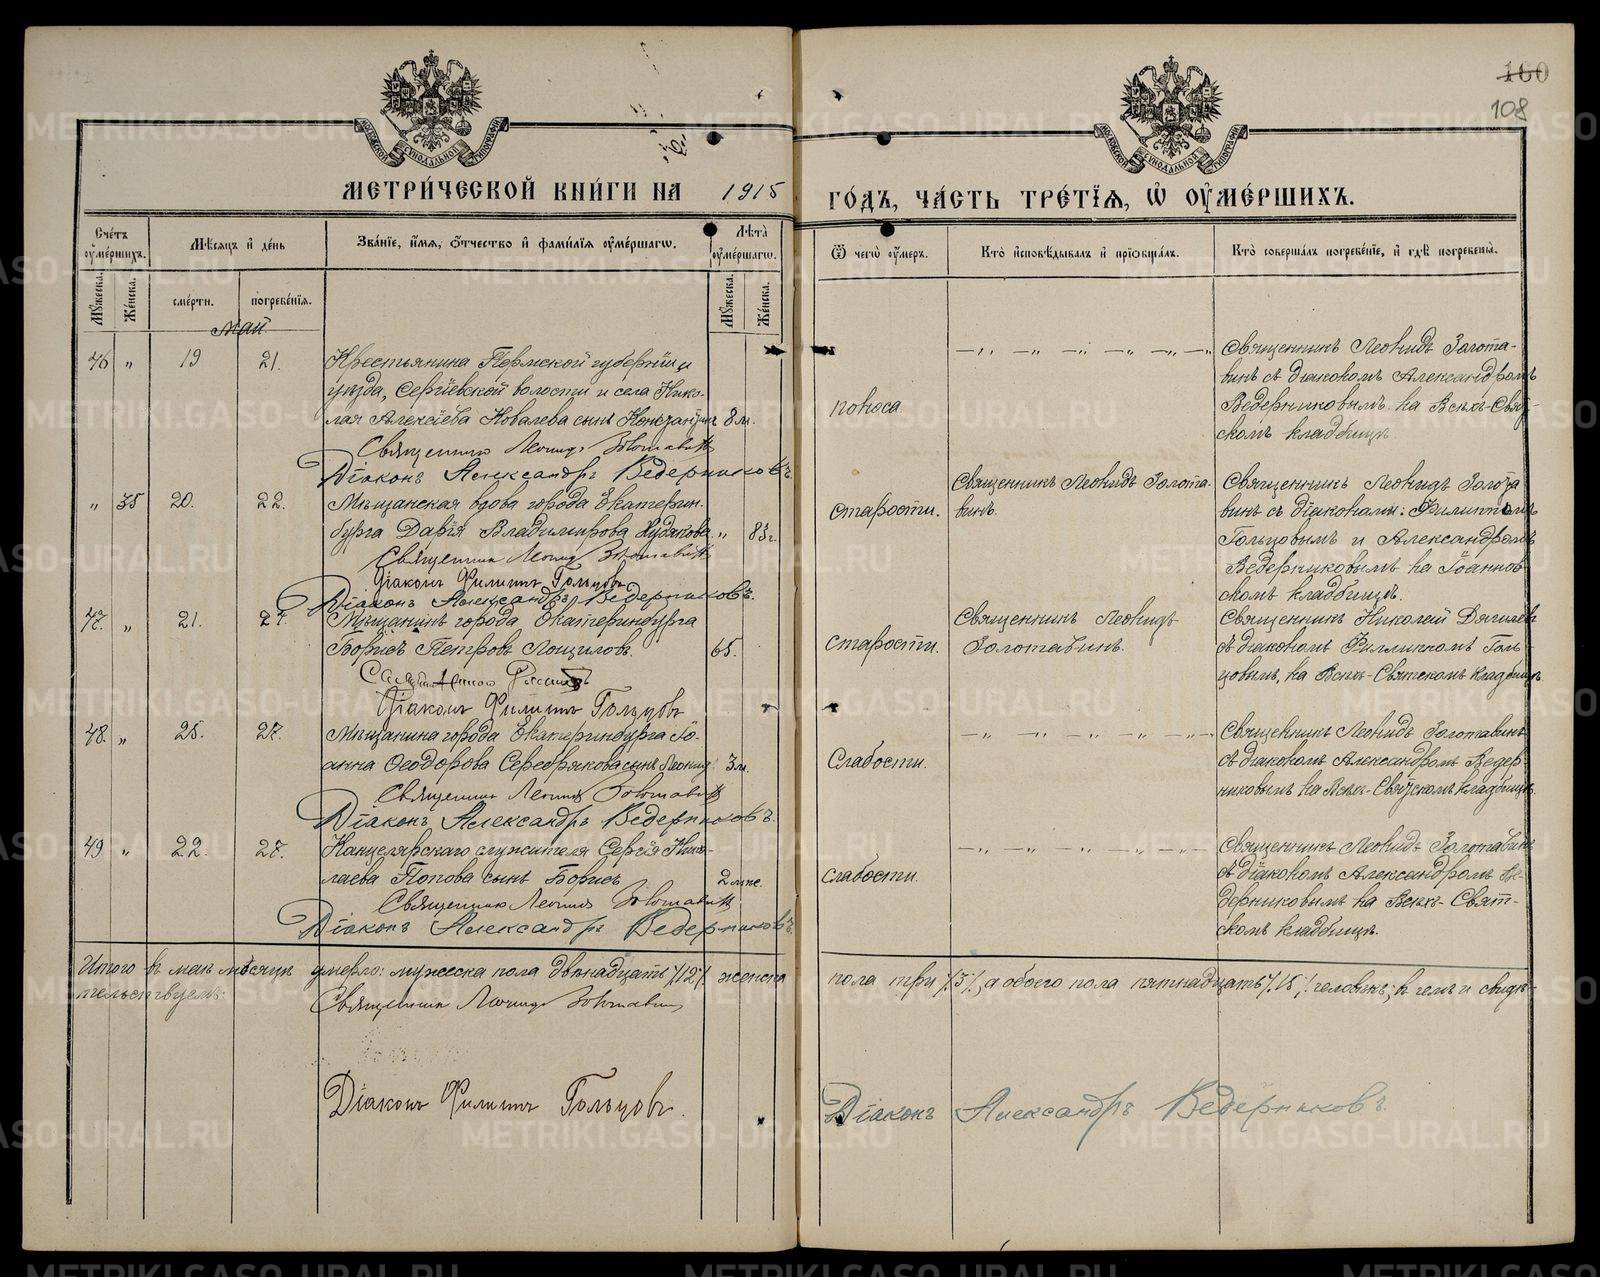 160
108
МОСКОВСКОЙ СѴНОДАЛЬНОЙ ТИПОГРАФІИ
МОСКОВСКОЙ СѴНОДАЛЬНОЙ ТИПОГРАФІИ
МЕТРИ́ЧЕСКОЙ КНИ́ГИ НА 1915 ГО́ДЪ, ЧА́СТЬ ТРЕ́ТІѦ, Ѡ҆ ОУ҆МЕ́РШИХЪ.
Сче́тъ оу҆ме́ршихъ.
Мѣ́сяцъ и҆ де́нь
Зва́нїе, и҆́мѧ, ѻ҆́тчество и҆ фами́лїѧ оу҆ме́ршагѡ.
Лѣ́та оу҆ме́ршагѡ.
Ѿ чегѡ̀ оу҆́меръ.
Кто̀ и҆сповѣ́дывалъ и҆ прїѡбща́лъ.
Кто̀ соверша́лъ погребе́нїе, и҆ гдѣ̀ погребены̀.
Мꙋ́жеска. Же́нска. сме́рти. погребе́нїѧ. Мꙋ́жеска. Же́нска.
Май
46 " 19 21.
Крестьянина Пермской губерніи и
уѣзда, Сергіевской волости и села Нико-
лая Алексѣева Ковалева сынъ Константинъ 8 м.
Священникъ Леонидъ Золотавинъ
Діаконъ Александръ Ведерниковъ.
поноса
Священникъ Леонидъ Золота-
винъ съ діакономъ Александромъ
Ведерниковымъ на Всѣхъ-Свят-
скомъ кладбищѣ
" 35 20. 22.
Мѣщанская вдова города Екатерин-
бурга Дарія Владимирова Худякова " 83 г.
Священникъ Леонидъ Золотавинъ
Діаконъ Филиппъ Гольцовъ
Діаконъ Александръ Ведерниковъ.
старости.
Священникъ Леонидъ Золота-
винъ.
Священникъ Леонидъ Золота
винъ съ діаконами: Филиппомъ
Гольцовымъ и Александромъ
Ведерниковымъ на Іоаннов
скомъ кладбищѣ.
47. " 21. 24.
Мѣщанинъ города Екатеринбурга
Борисъ Петровъ Лощиловъ. 65.
Діаконъ Филиппъ Гольцовъ
старости.
Священникъ Леонидъ
Золотавинъ.
Священникъ Николай Дягилевъ
съ діакономъ Филиппомъ Голь-
цовымъ, на Всѣхъ-Святскомъ кладбищѣ.
48. " 25. 27.
Мѣщанина города Екатеринбурга Іо-
анна Ѳеодорова Серебрякова сынъ Леонидъ 3 м.
Священникъ Леонидъ Золотавинъ
Діаконъ Александръ Ведерниковъ.
Слабости.
Священникъ Леонидъ Золотавинъ
съ діакономъ Александромъ Ведер-
никовымъ на Всѣхъ-Святскомъ кладбищѣ.
49 " 22. 27.
Канцелярскаго служителя Сергія Нико-
лаева Попова сынъ Борисъ 2 мѣс.
Священникъ Леонидъ Золотавинъ
Діаконъ Александръ Ведерниковъ.
слабости.
Священникъ Леонидъ Золотавинъ
съ діакономъ Александромъ Ве-
дерниковымъ на Всѣхъ-Свят-
скомъ кладбищѣ.
Итого въ маѣ мѣсяцѣ умерло: мужеска пола двѣнадцать /12/, женска пола три /3/, а обоего пола пятнадцать /15/ человѣкъ; въ чемъ и свидѣ-
тельствуемъ:
Священникъ Леонидъ Золотавинъ
Діаконъ Филиппъ Гольцовъ.
Діаконъ Александръ Ведерниковъ.
METRIKI.GASO-URAL.RU